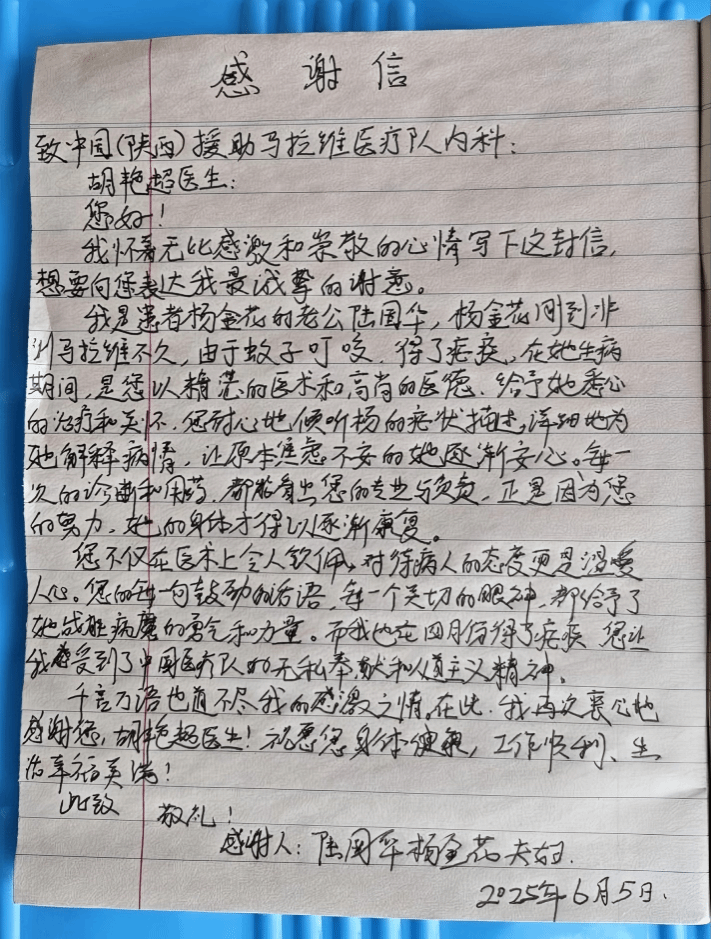 感谢信
致中国(陕西)援助马拉维医疗队内科:
胡艳超医生:
您好!
我怀着无比感激和崇敬的心情写下这封信,
想要向您表达我最诚挚的谢意。
我是患者杨金花的老公陆国华,杨金花刚到非
洲马拉维不久,由于蚊子叮咬,得了疟疾,在她生病
期间,是您以精湛的医术和高尚的医德,给予她悉心
的治疗和关怀,您耐心地倾听杨的症状描述,详细地为
她解释病情,让原本焦虑不安的她逐渐安心。每一
次的诊断和用药,都能看出您的专业与负责,正是因为您
的努力,她的身体才得以逐渐康复。
您不仅在医术上令人钦佩,对待病人的态度更是温暖
人心。您的每一句鼓励的话语,每一个关切的眼神,都给予了
她战胜病魔的勇气和力量。而我也在四月份得了疟疾 您让
我感受到了中国医疗队的无私奉献和人道主义精神。
千言万语也道不尽我的感激之情。在此,我再次衷心地
感谢您,胡艳超医生!祝愿您身体健康,工作顺利、生
活幸福美满!
此致 敬礼!
感谢人:陆国华杨金花夫妇.
2025年6月5日.